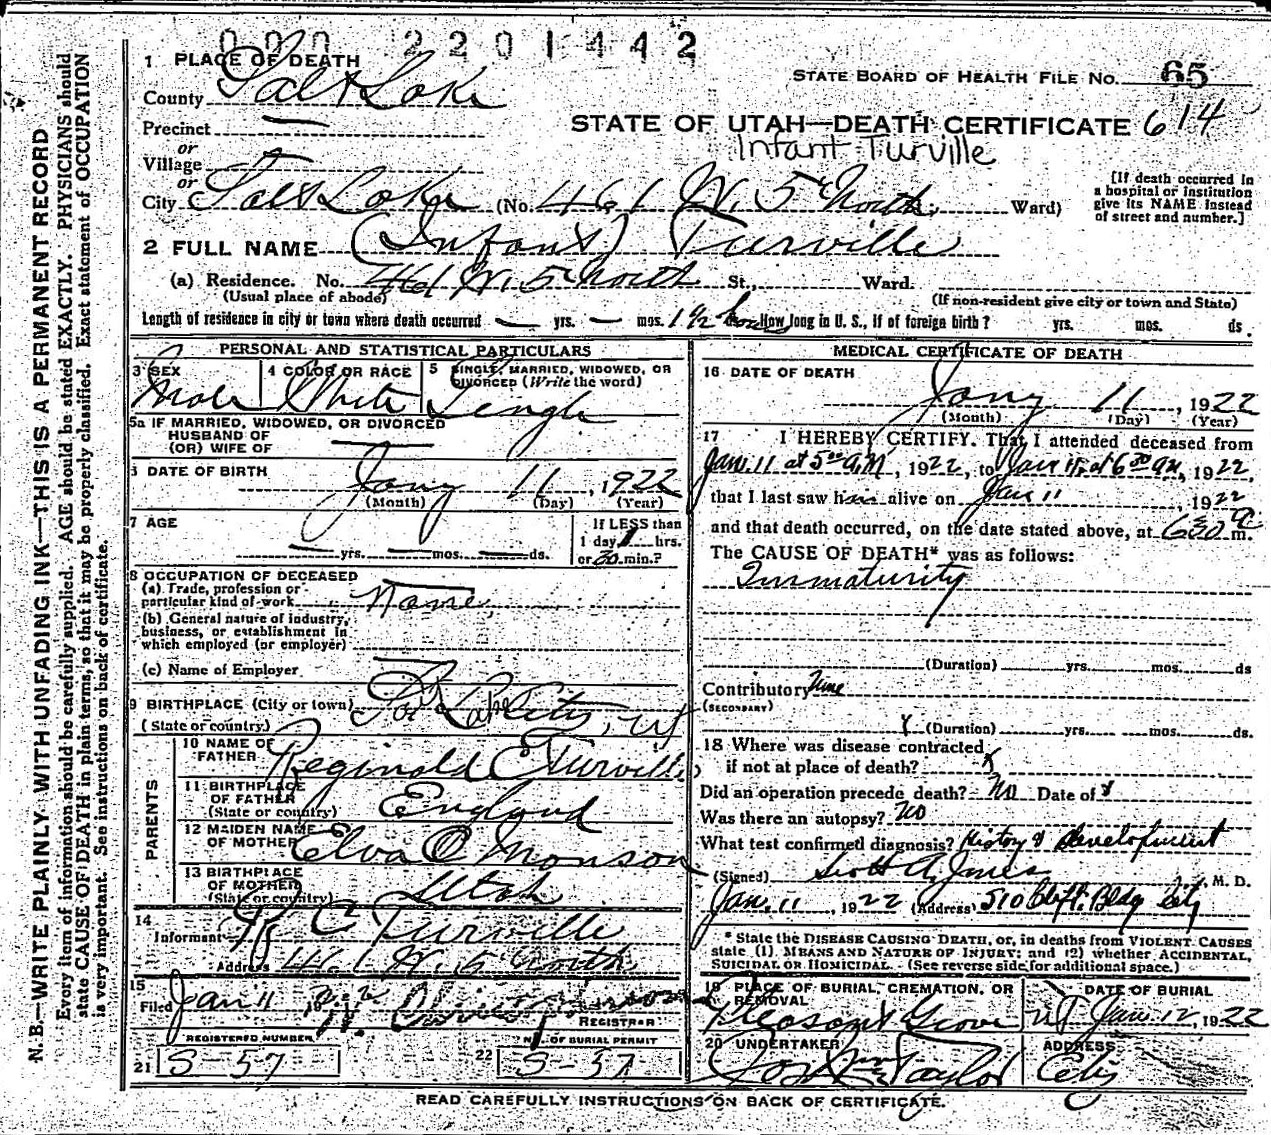 000 2201442
1 PLACE OF DEATH
County Salt Lake
STATE BOARD OF HEALTH FILE NO. 65
Precinct —
or
Village
or
City Salt Lake (No. 461 W. 5 North, Ward)
STATE OF UTAH—DEATH CERTIFICATE 614
Infant Turville
[If death occurred in
a hospital or institution
give its NAME instead
of street and number.]
2 FULL NAME (Infant) Turville
(a) Residence. No. 461 W. 5 North St., Ward.
(Usual place of abode)
(If non-resident give city or town and State)
Length of residence in city or town where death occurred — yrs. — mos. 1 1/2 hours How long in U. S., if of foreign birth? yrs. mos. ds.
PERSONAL AND STATISTICAL PARTICULARS
3 SEX
Male
4 COLOR OR RACE
White
5 SINGLE, MARRIED, WIDOWED, OR
DIVORCED (Write the word)
Single
5a IF MARRIED, WIDOWED, OR DIVORCED
HUSBAND OF
(OR) WIFE OF —
6 DATE OF BIRTH
Jany 11, 1922
(Month) (Day) (Year)
7 AGE
— yrs. — mos. — ds.
If LESS than
1 day 1 hrs.
or 30 min.?
8 OCCUPATION OF DECEASED
(a) Trade, profession or
particular kind of work None
(b) General nature of industry,
business, or establishment in
which employed (or employer)
(c) Name of Employer
9 BIRTHPLACE (City or town) Salt Lake City, Ut
(State or country)
PARENTS
10 NAME OF
FATHER Reginald C Turville
11 BIRTHPLACE
OF FATHER
(State or country) England
12 MAIDEN NAME
OF MOTHER Elva O Monson
13 BIRTHPLACE
OF MOTHER
(State or country) Utah
14
Informant R C Turville
Address 461 W. 5 North
15
Filed Jan 11 1922
REGISTRAR
REGISTERED NUMBER
21 S-57
NO. OF BURIAL PERMIT
22 S-57
MEDICAL CERTIFICATE OF DEATH
16 DATE OF DEATH
Jany 11, 1922
(Month) (Day) (Year)
17 I HEREBY CERTIFY. That I attended deceased from
Jan. 11 at 5:00 a.m, 1922, to Jan 11, at 6:30 am, 1922,
that I last saw him alive on Jan 11 1922
and that death occurred, on the date stated above, at 6:30 a m.
The CAUSE OF DEATH* was as follows:
Immaturity
(Duration) yrs. mos. ds
Contributory None
(SECONDARY)
x (Duration) yrs. mos. ds.
18 Where was disease contracted
if not at place of death? x
Did an operation precede death? No Date of x
Was there an autopsy? No
What test confirmed diagnosis? History & development
(Signed) Scott A. Jones M. D.
Jan. 11, 1922 (Address) 510 Clift. Bldg City
* State the DISEASE CAUSING DEATH, or, in deaths from VIOLENT CAUSES
state (1) MEANS AND NATURE OF INJURY; and (2) whether ACCIDENTAL,
SUICIDAL OR HOMICIDAL. (See reverse side for additional space.)
19 PLACE OF BURIAL, CREMATION, OR
REMOVAL
Pleasant Grove Ut
DATE OF BURIAL
Jan. 12, 1922
20 UNDERTAKER
Jos Wm Taylor
ADDRESS
City
READ CAREFULLY INSTRUCTIONS ON BACK OF CERTIFICATE.
N. B.—WRITE PLAINLY WITH UNFADING INK—THIS IS A PERMANENT RECORD
Every item of information should be carefully supplied. AGE should be stated EXACTLY. PHYSICIANS should
state CAUSE OF DEATH in plain terms, so that it may be properly classified. Exact statement of OCCUPATION
is very important. See instructions on back of certificate.